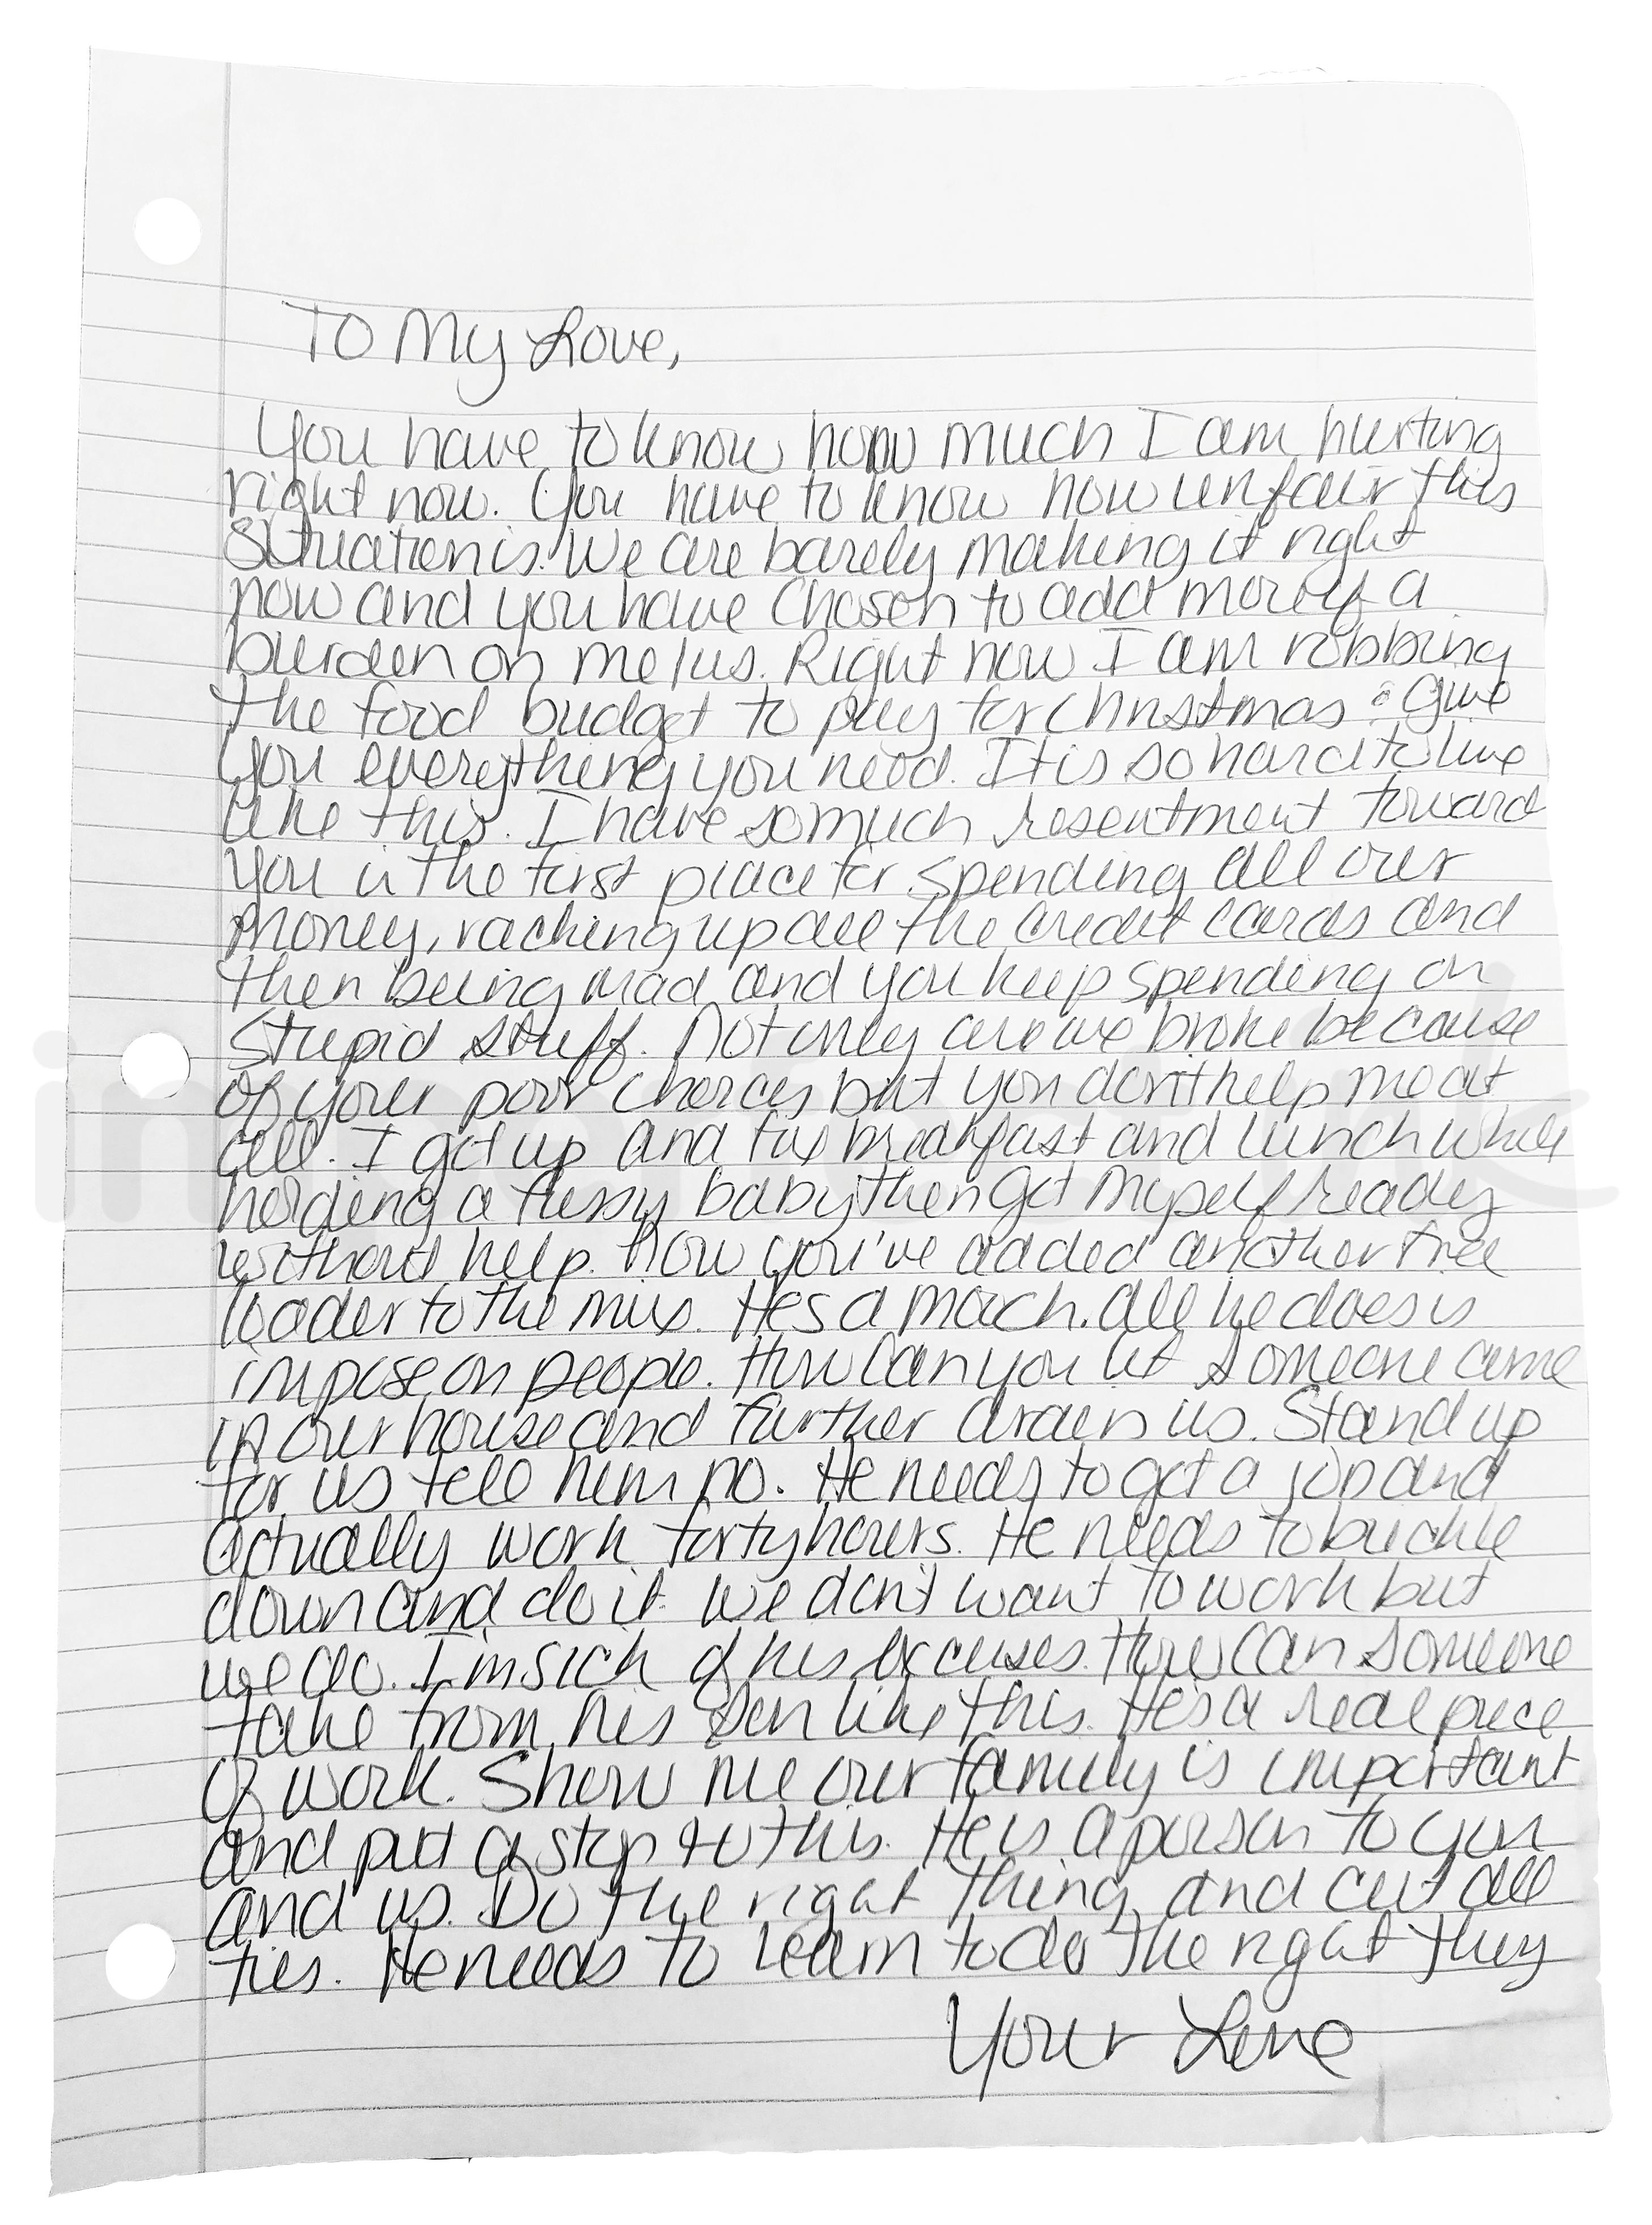 To My Love,
You have to know how much I am hurting
right now. You have to know how unfair this
situation is. We are barely making it right
now and you have chosen to add more of a
burden on me/us. Right now I am robbing
the food budget to pay for Christmas & give
you everything you need. It is so hard to live
like this. I have so much resentment toward
you in the first place for spending all our
money, racking up all the credit cards and
then being mad and you keep spending on
stupid stuff. Not only are we broke because
of your poor choices but you don't help me at
all. I get up and fix breakfast and lunch while
holding a fussy baby then get myself ready
without help. Now you've added another free
loader to the mix. He's a mooch. All he does is
impose on people. How can you let someone come
in our house and further drain us. Stand up
for us tell him no. He needs to get a job and
actually work forty hours. He needs to buckle
down and do it. We don't want to work but
we do. I'm sick of his excuses. How can someone
take from his son like this. He's a real piece
of work. Show me our family is important
and put a stop to this. He is a poison to you
and us. Do the right thing and cut all
ties. He needs to learn to do the right they
Your Love